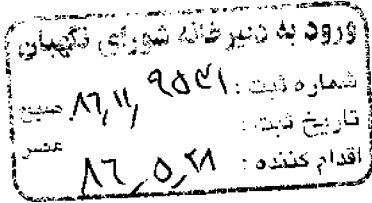 ورود به دبیرخانه شورای نگهبان
شماره ثبت: ۸۶٫۱۱٫ ۹۵۳۱ صبح
تاریخ ثبت: عصر
اقدام کننده: ۸۶٫۵٫۲۸